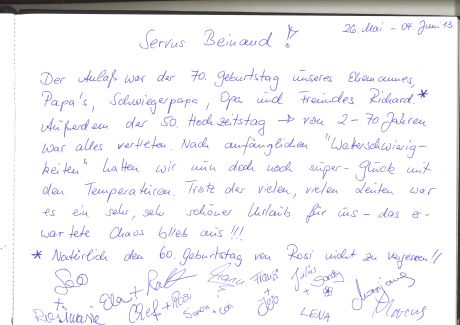 26. Mai - 04. Juni 13
Servus Beinand!
Der Anlaß war der 70. Geburtstag unseres Ehemannes,
Papa's, Schwiegerpapa, Opa und Freundes Richard.*
Außerdem der 50. Hochzeitstag → von 2-70 Jahren
war alles vertreten. Nach anfänglichen "Wetterschwierig-
keiten" hatten wir nun doch noch super-Glück mit
den Temperaturen. Trotz der vielen, vielen Leuten war
es ein sehr, sehr schöner Urlaub für uns - das er-
wartete Chaos blieb aus!!!
* Natürlich den 60. Geburtstag von Rosi nicht zu vergessen!!
+ Rosimarie
Ela + Ralf
Chef + Rosi
Simon +
Franzi + Jojo
Julius + Sandy
LENA
Marianne
Marcus